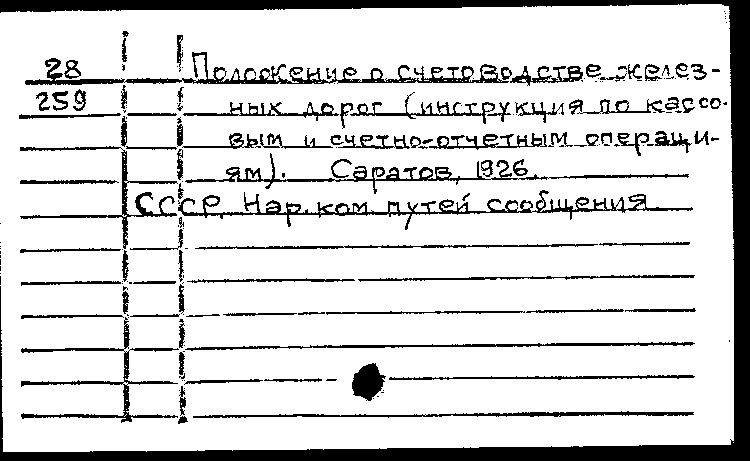 28 Положение о счетоводстве желез-
259 ных дорог (инструкция по кассо-
вым и счетно-отчетным операци-
ям). Саратов, 1926.
СССР. Нар. ком путей сообщения.